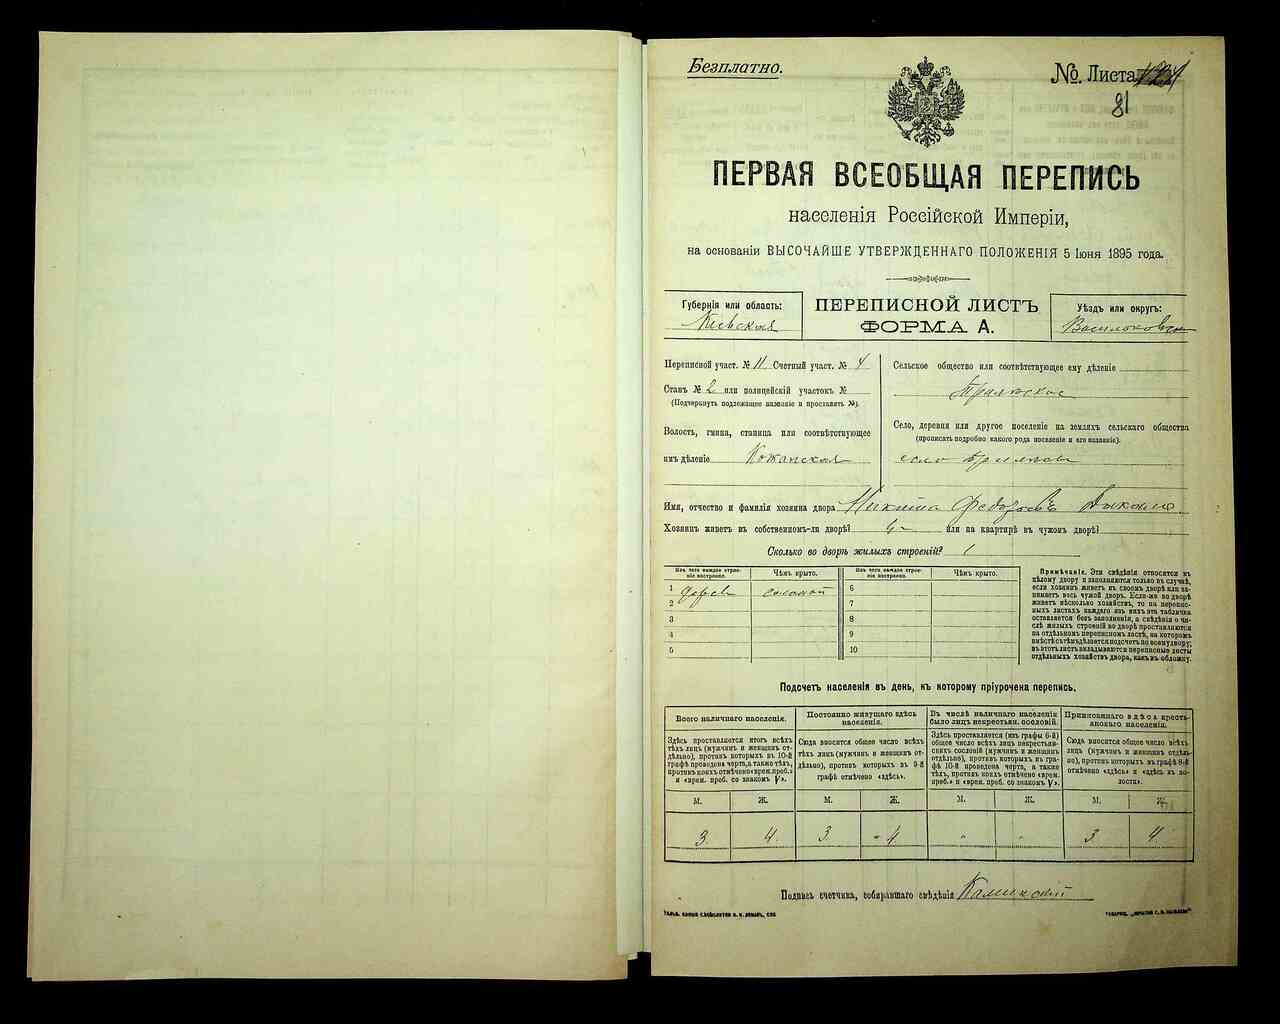 Безплатно.
№ Листа
81
ПЕРВАЯ ВСЕОБЩАЯ ПЕРЕПИСЬ
населенія Россійской Имперіи,
на основаніи ВЫСОЧАЙШЕ УТВЕРЖДЕННАГО ПОЛОЖЕНІЯ 5 Іюня 1895 года.
Губернія или область:
Кіевская
ПЕРЕПИСНОЙ ЛИСТЪ
ФОРМА А.
Уѣздъ или округъ:
Переписной участ. № 11 Счетный участ. № 4
Станъ № 2 или полицейскій участокъ №
(Подчеркнуть подлежащее названіе и проставить №).
Волость, гмина, станица или соотвѣтствующее
имъ дѣленіе Кожанская
Сельское общество или соотвѣтствующее ему дѣленіе
Село, деревня или другое поселеніе на земляхъ сельскаго общества
(прописать подробно какого рода поселеніе и его названіе).
село
Имя, отчество и фамилія хозяина двора Никита Федоровъ
Хозяинъ живетъ въ собственномъ-ли дворѣ? или на квартирѣ въ чужомъ дворѣ?
Сколько во дворѣ жилыхъ строеній? 1
Изъ чего каждое строеніе построено. Чѣмъ крыто. Изъ чего каждое строеніе построено. Чѣмъ крыто.
1 дерев соломой 6
2 7
3 8
4 9
5 10
Примѣчаніе. Эти свѣдѣнія относятся къ
цѣлому двору и заполняются только въ случаѣ,
если хозяинъ живетъ въ своемъ дворѣ или занимаетъ
весь чужой дворъ. Если-же во дворѣ
живетъ нѣсколько хозяйствъ, то на переписныхъ
листахъ каждаго изъ нихъ эта табличка
оставляется безъ заполненія, а свѣдѣнія о числѣ
жилыхъ строеній во дворѣ проставляются
на отдѣльномъ переписномъ листѣ, на которомъ
вмѣстѣ съ тѣмъ дѣлается подсчетъ по всему двору;
въ этотъ листъ вкладываются переписные листы
отдѣльныхъ хозяйствъ двора, какъ въ обложку.
Подсчетъ населенія въ день, къ которому пріурочена перепись.
Всего наличнаго населенія.
Здѣсь проставляется итогъ всѣхъ
тѣхъ лицъ (мужчинъ и женщинъ отдѣльно),
противъ которыхъ въ 10-й
графѣ проведена черта, а также тѣхъ,
противъ коихъ отмѣчено «врем. преб.»
и «врем. преб. со знакомъ V».
Постоянно живущаго здѣсь
населенія.
Сюда вносится общее число всѣхъ
тѣхъ лицъ (мужчинъ и женщинъ отдѣльно),
противъ которыхъ въ 9-й
графѣ отмѣчено «здѣсь».
Въ числѣ наличнаго населенія
было лицъ некрестьян. сословій.
Здѣсь проставляется (изъ графы 6-й)
общее число всѣхъ лицъ некрестьянскихъ
сословій (мужчинъ и женщинъ
отдѣльно), противъ которыхъ въ графѣ
10-й проведена черта, а также
тѣхъ, противъ коихъ отмѣчено «врем.
преб.» и «врем. преб. со знакомъ V».
Приписаннаго здѣсь крестьянскаго
населенія.
Сюда вносится общее число всѣхъ
лицъ (мужчинъ и женщинъ отдѣльно),
противъ которыхъ въ графѣ 8-й
отмѣчено «здѣсь» и «здѣсь въ волости».
М. Ж. М. Ж. М. Ж. М. Ж.
3 4 3 4 " " 3 4
Подпись счетчика, собиравшаго свѣдѣнія